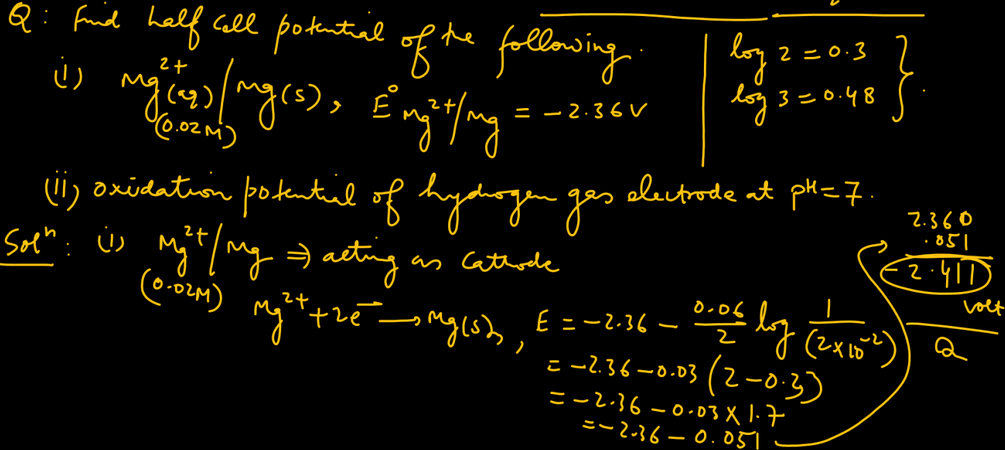 Q: Find half cell potential of the following.
i) Mg²⁺(aq)/Mg(s), E° Mg²⁺/Mg = -2.36V
(0.02M)
log 2 = 0.3
log 3 = 0.48
(ii) oxidation potential of hydrogen gas electrode at pH=7.
Solⁿ: (i) Mg²⁺/Mg ⇒ acting as Cathode
(0.02M)
Mg²⁺ + 2e⁻ → Mg(s), E = -2.36 - 0.06/2 log 1/(2×10⁻²)
= -2.36 - 0.03 (2-0.3)
= -2.36 - 0.03 × 1.7
= -2.36 - 0.051
2.360
.051
-2.411
volt
Q